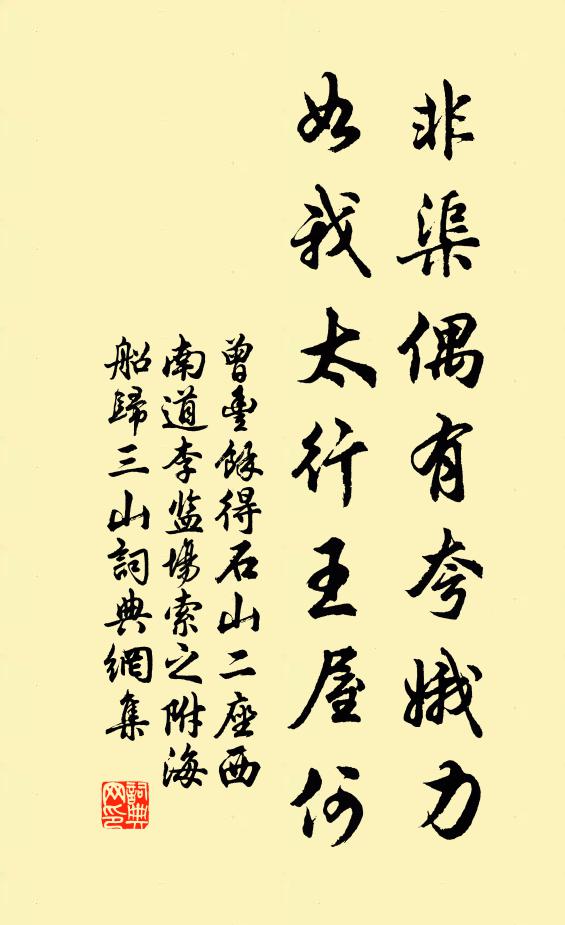 非渠偶有夸娥力
如我太行王屋何
曾豐餘得石山二座西
南道李监場索之附海
船歸三山詞典網集
詞典
网印